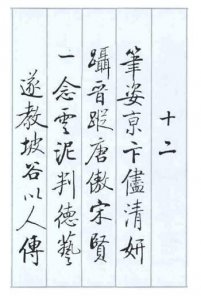 十二
筆姿京卞儘清妍
躡晋蹤唐傲宋賢
一念雲泥判德藝
遂教坡谷以人傳